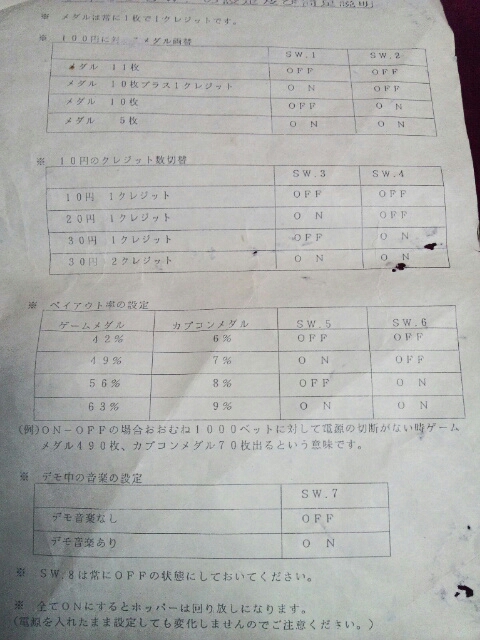 の設定及び簡単説明
※ メダルは常に1枚で1クレジットです。
※ 100円に対 メダル両替
SW.1 SW.2
メダル 11枚 OFF OFF
メダル 10枚プラス1クレジット ON OFF
メダル 10枚 OFF ON
メダル 5枚 ON ON
※ 10円のクレジット数切替
SW.3 SW.4
10円 1クレジット OFF OFF
20円 1クレジット ON OFF
30円 1クレジット OFF ON
30円 2クレジット ON ON
※ ペイアウト率の設定
ゲームメダル カプコンメダル SW.5 SW.6
42% 6% OFF OFF
49% 7% ON OFF
56% 8% OFF ON
63% 9% ON ON
(例)ON-OFFの場合おおむね1000ベットに対して電源の切断がない時ゲーム
メダル490枚、カプコンメダル70枚出るという意味です。
※ デモ中の音楽の設定
SW.7
デモ音楽なし OFF
デモ音楽あり ON
※ SW.8は常にOFFの状態にしておいてください。
※ 全てONにするとホッパーは回り放しになります。
(電源を入れたまま設定しても変化しませんのでご注意ください。)